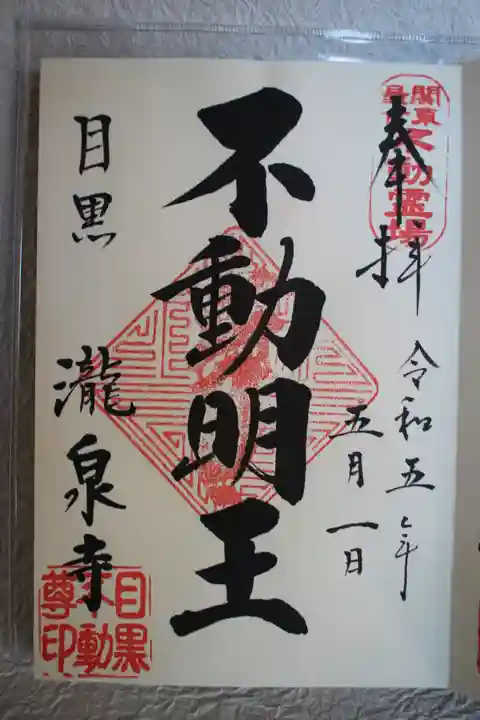 奉拝
関東最
不動霊場
令和五年
五月一日
不動明王
目黒
瀧泉寺
目黒
不動
尊印